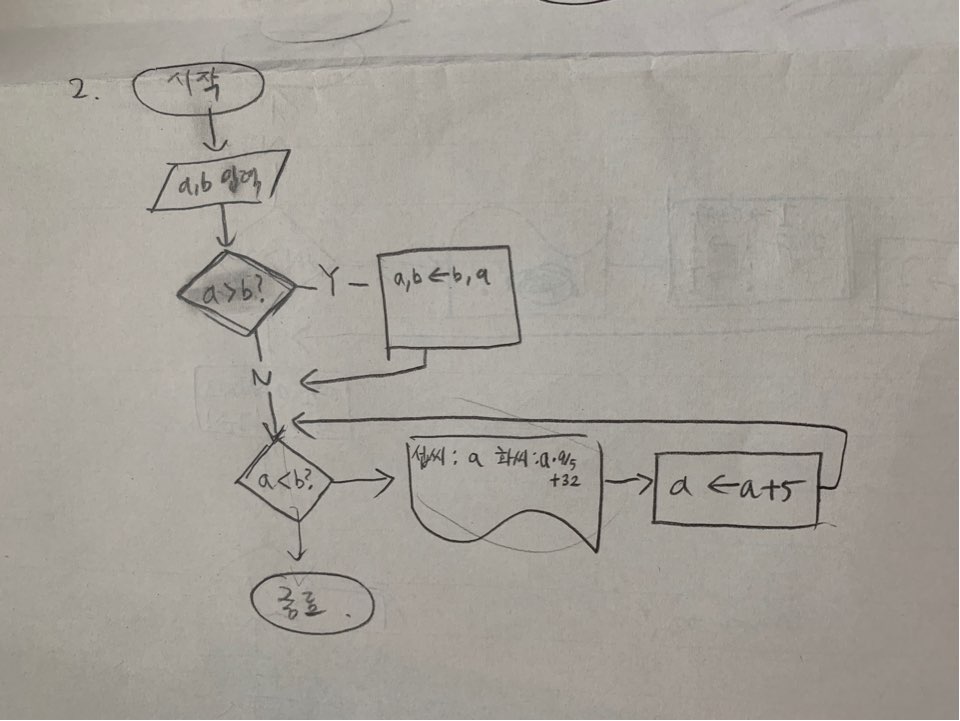 2.
시작
a,b 입력
a>b?
Y
a,b ← b,a
N
a<b?
섭씨: a 화씨: a·9/5
+32
a ← a+5
종료.